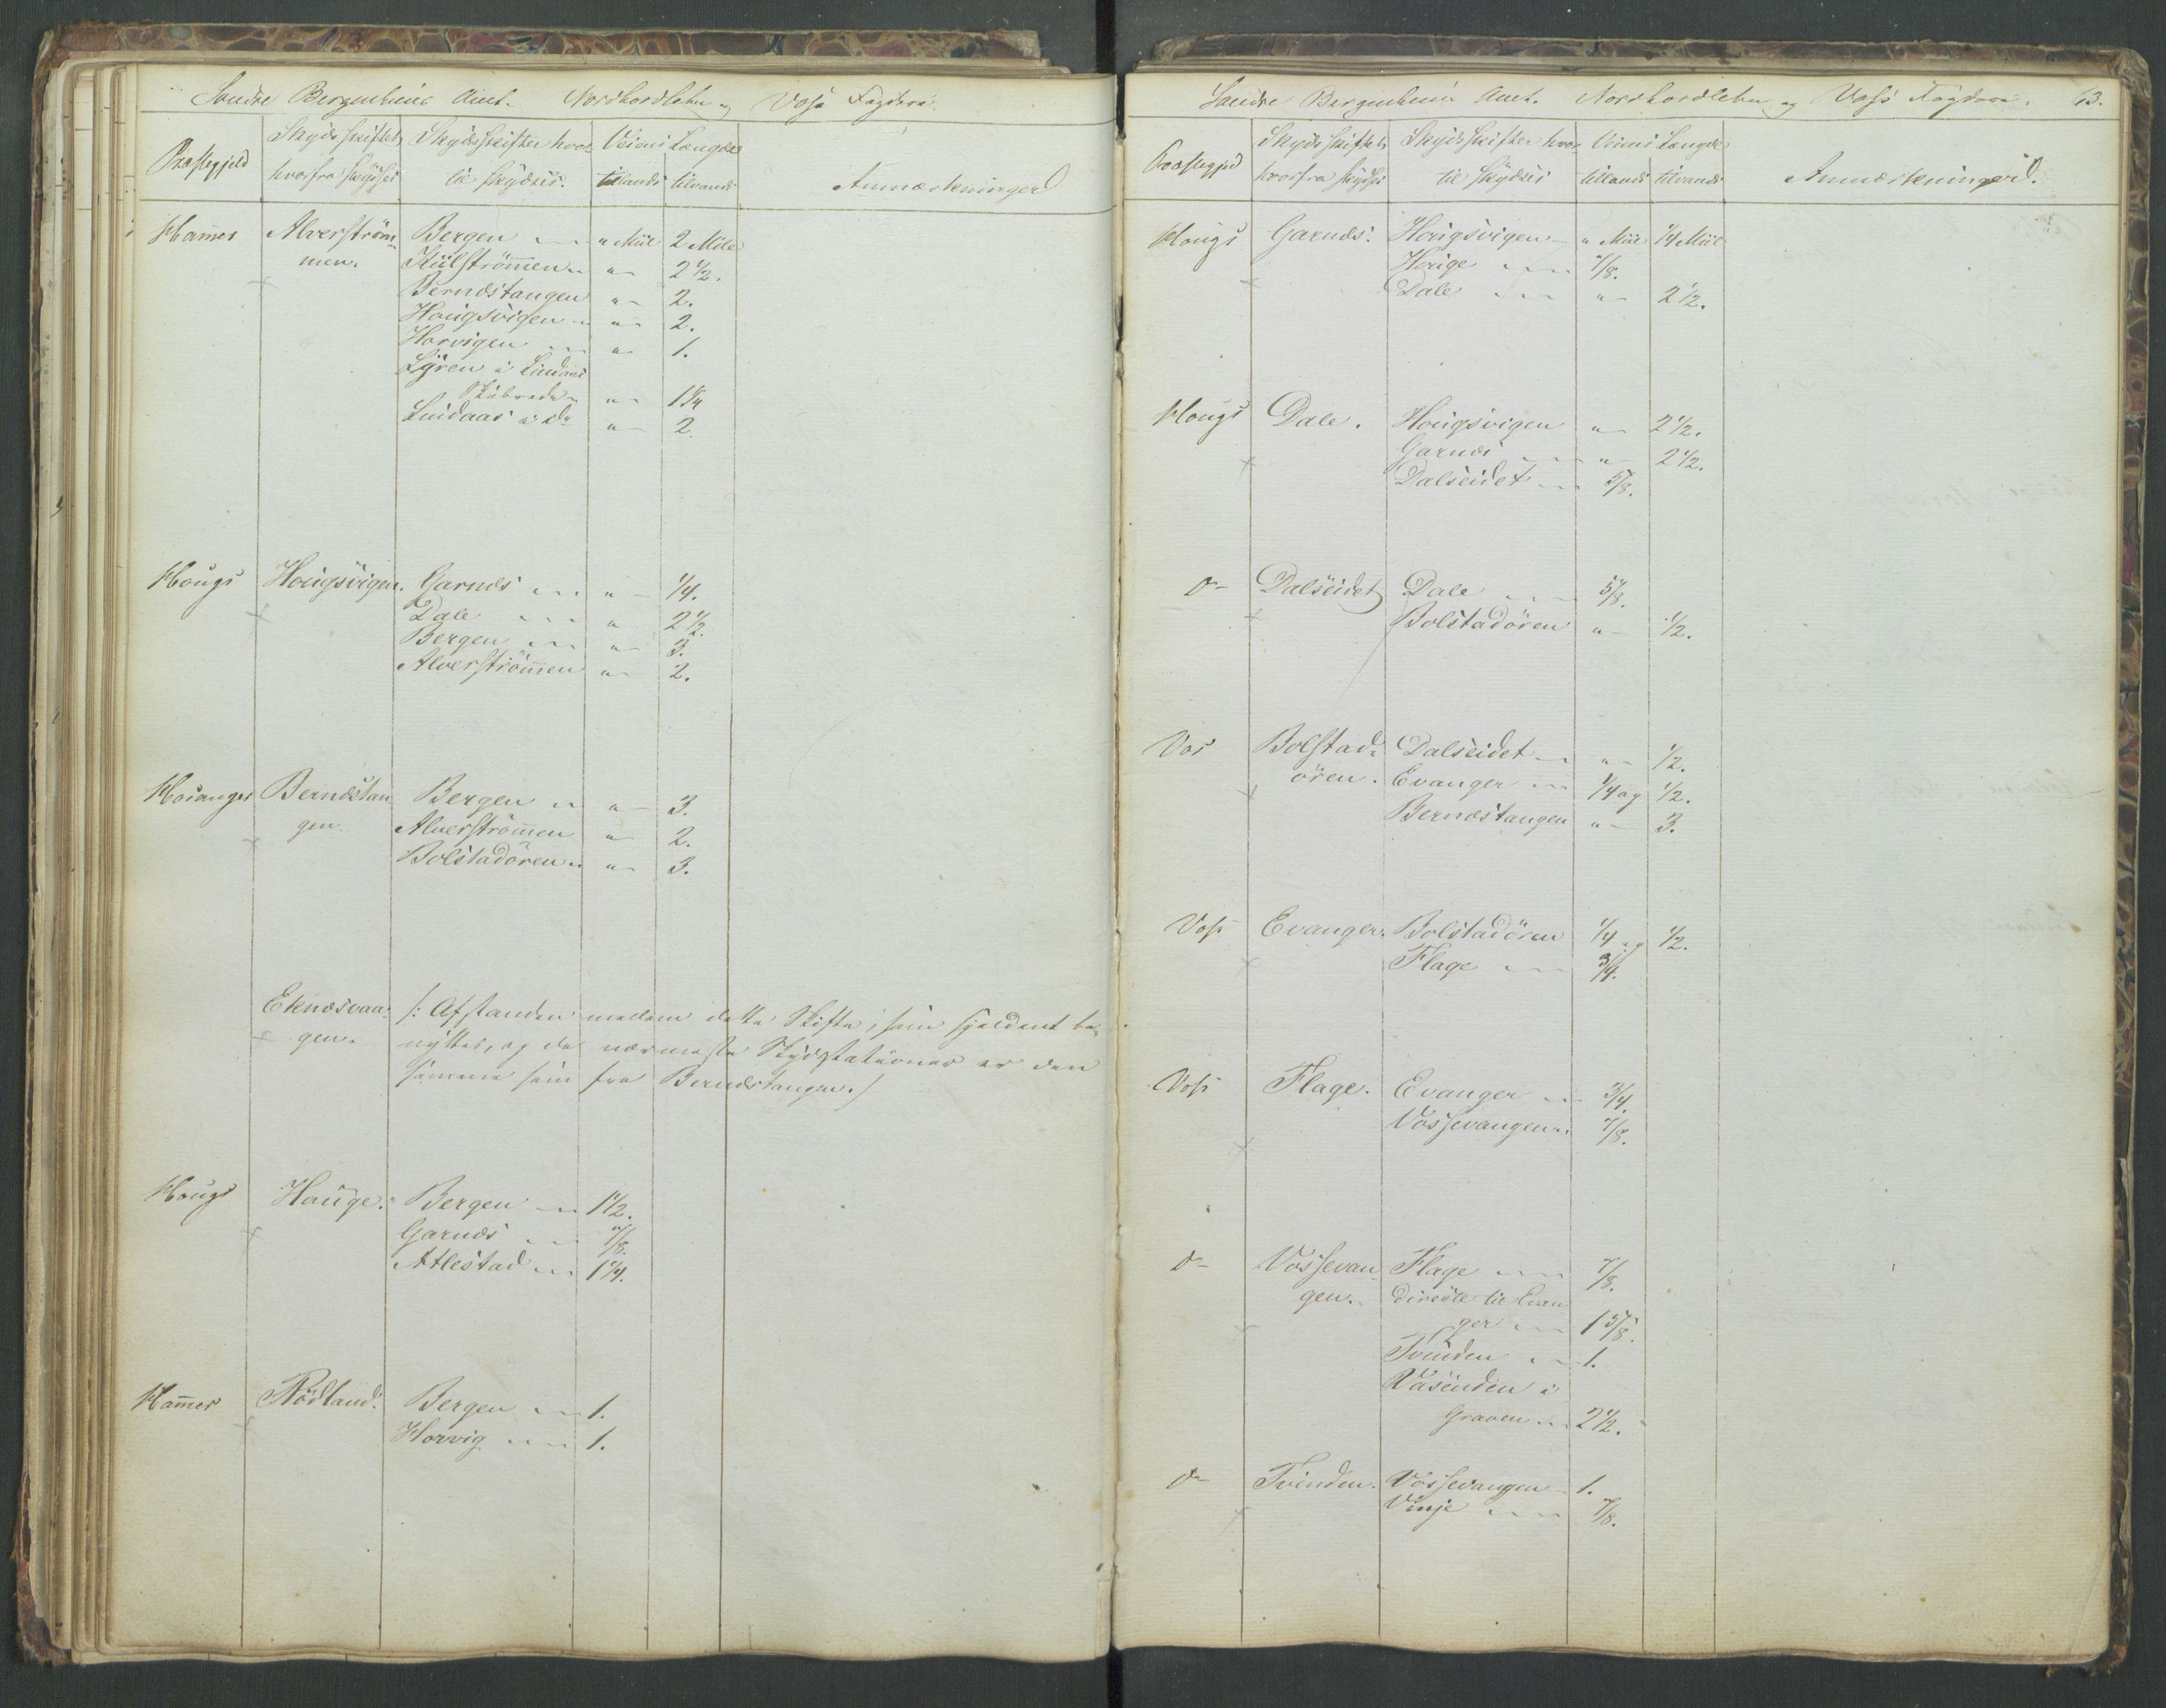 Søndre Bergenhuus Amt. Nordhordlehn og Voss Fogderie.
Præstegjeld
Skydsskiftet, Skydsskifter hvor Veiens Længde
hvorfra skydses til skydses. tillands tilvands Anmærkninger
Ham̄er Alverström- Bergen " Miil 2 Mile
men. Kiilströmmen " 2 1/2.
Bernæstangen " 2.
Hougsvigen " 2.
Horvigen " 1.
Lygren i Lindaas
Skibrede " 1 1/4
Lindaas i do " 2.
Hougs Hougsvigen. Garnæs " 1/4.
Dale " 2 1/2.
Bergen " 3.
Alverström̄en " 2.
Hosanger Bernæstan Bergen " 3.
gen Alverström̄en " 2.
Bolstadören " 3.
Eknæsvaa- /: Afstanden mellem dette Skifte, som sjeldent be-
gen. nyttes, og de nærmeste Skydsstationer er den
samme som fra Bernæstangen. /
Hougs Hauge. Bergen 1 1/2.
Garnæs 7/8.
Atlestad 1 1/4.
Ham̄er Rödland. Bergen 1.
Horvig 1.
Søndre Bergenhuus Amt. Nordhordlehn og Voss Fogderie. 63.
Præstegjeld
Skydsskiftet, Skydsskifter hvor Veiens Længde
hvorfra skydses til skydses tillands tilvands Anmærkninger.
Hougs Garnæs. Hougsvigen " Miil 1/4 Miil
Houge 7/8.
Dale " 2 1/2.
Hougs Dale. Hougsvigen " 2 1/2.
Garnæs " 2 1/2.
Dalseidet 5/8.
do Dalseidet Dale 5/8.
Bolstadören " 1/2.
Vos Bolstad- Dalseidet " 1/2.
ören. Evanger 1/4 og 1/2.
Bernæstangen " 3.
Voss Evanger. Bolstadören 1/4 og 1/2.
Flage 3/4.
Voss Flage. Evanger 3/4.
Vossevangen 7/8.
do Vossevan Flage 7/8.
gen. directe til Evan
ger 1 5/8.
Tvinden 1.
Vasenden i
Graven 2 1/2.
do Tvinden. Vossevangen 1.
Vinje 7/8.